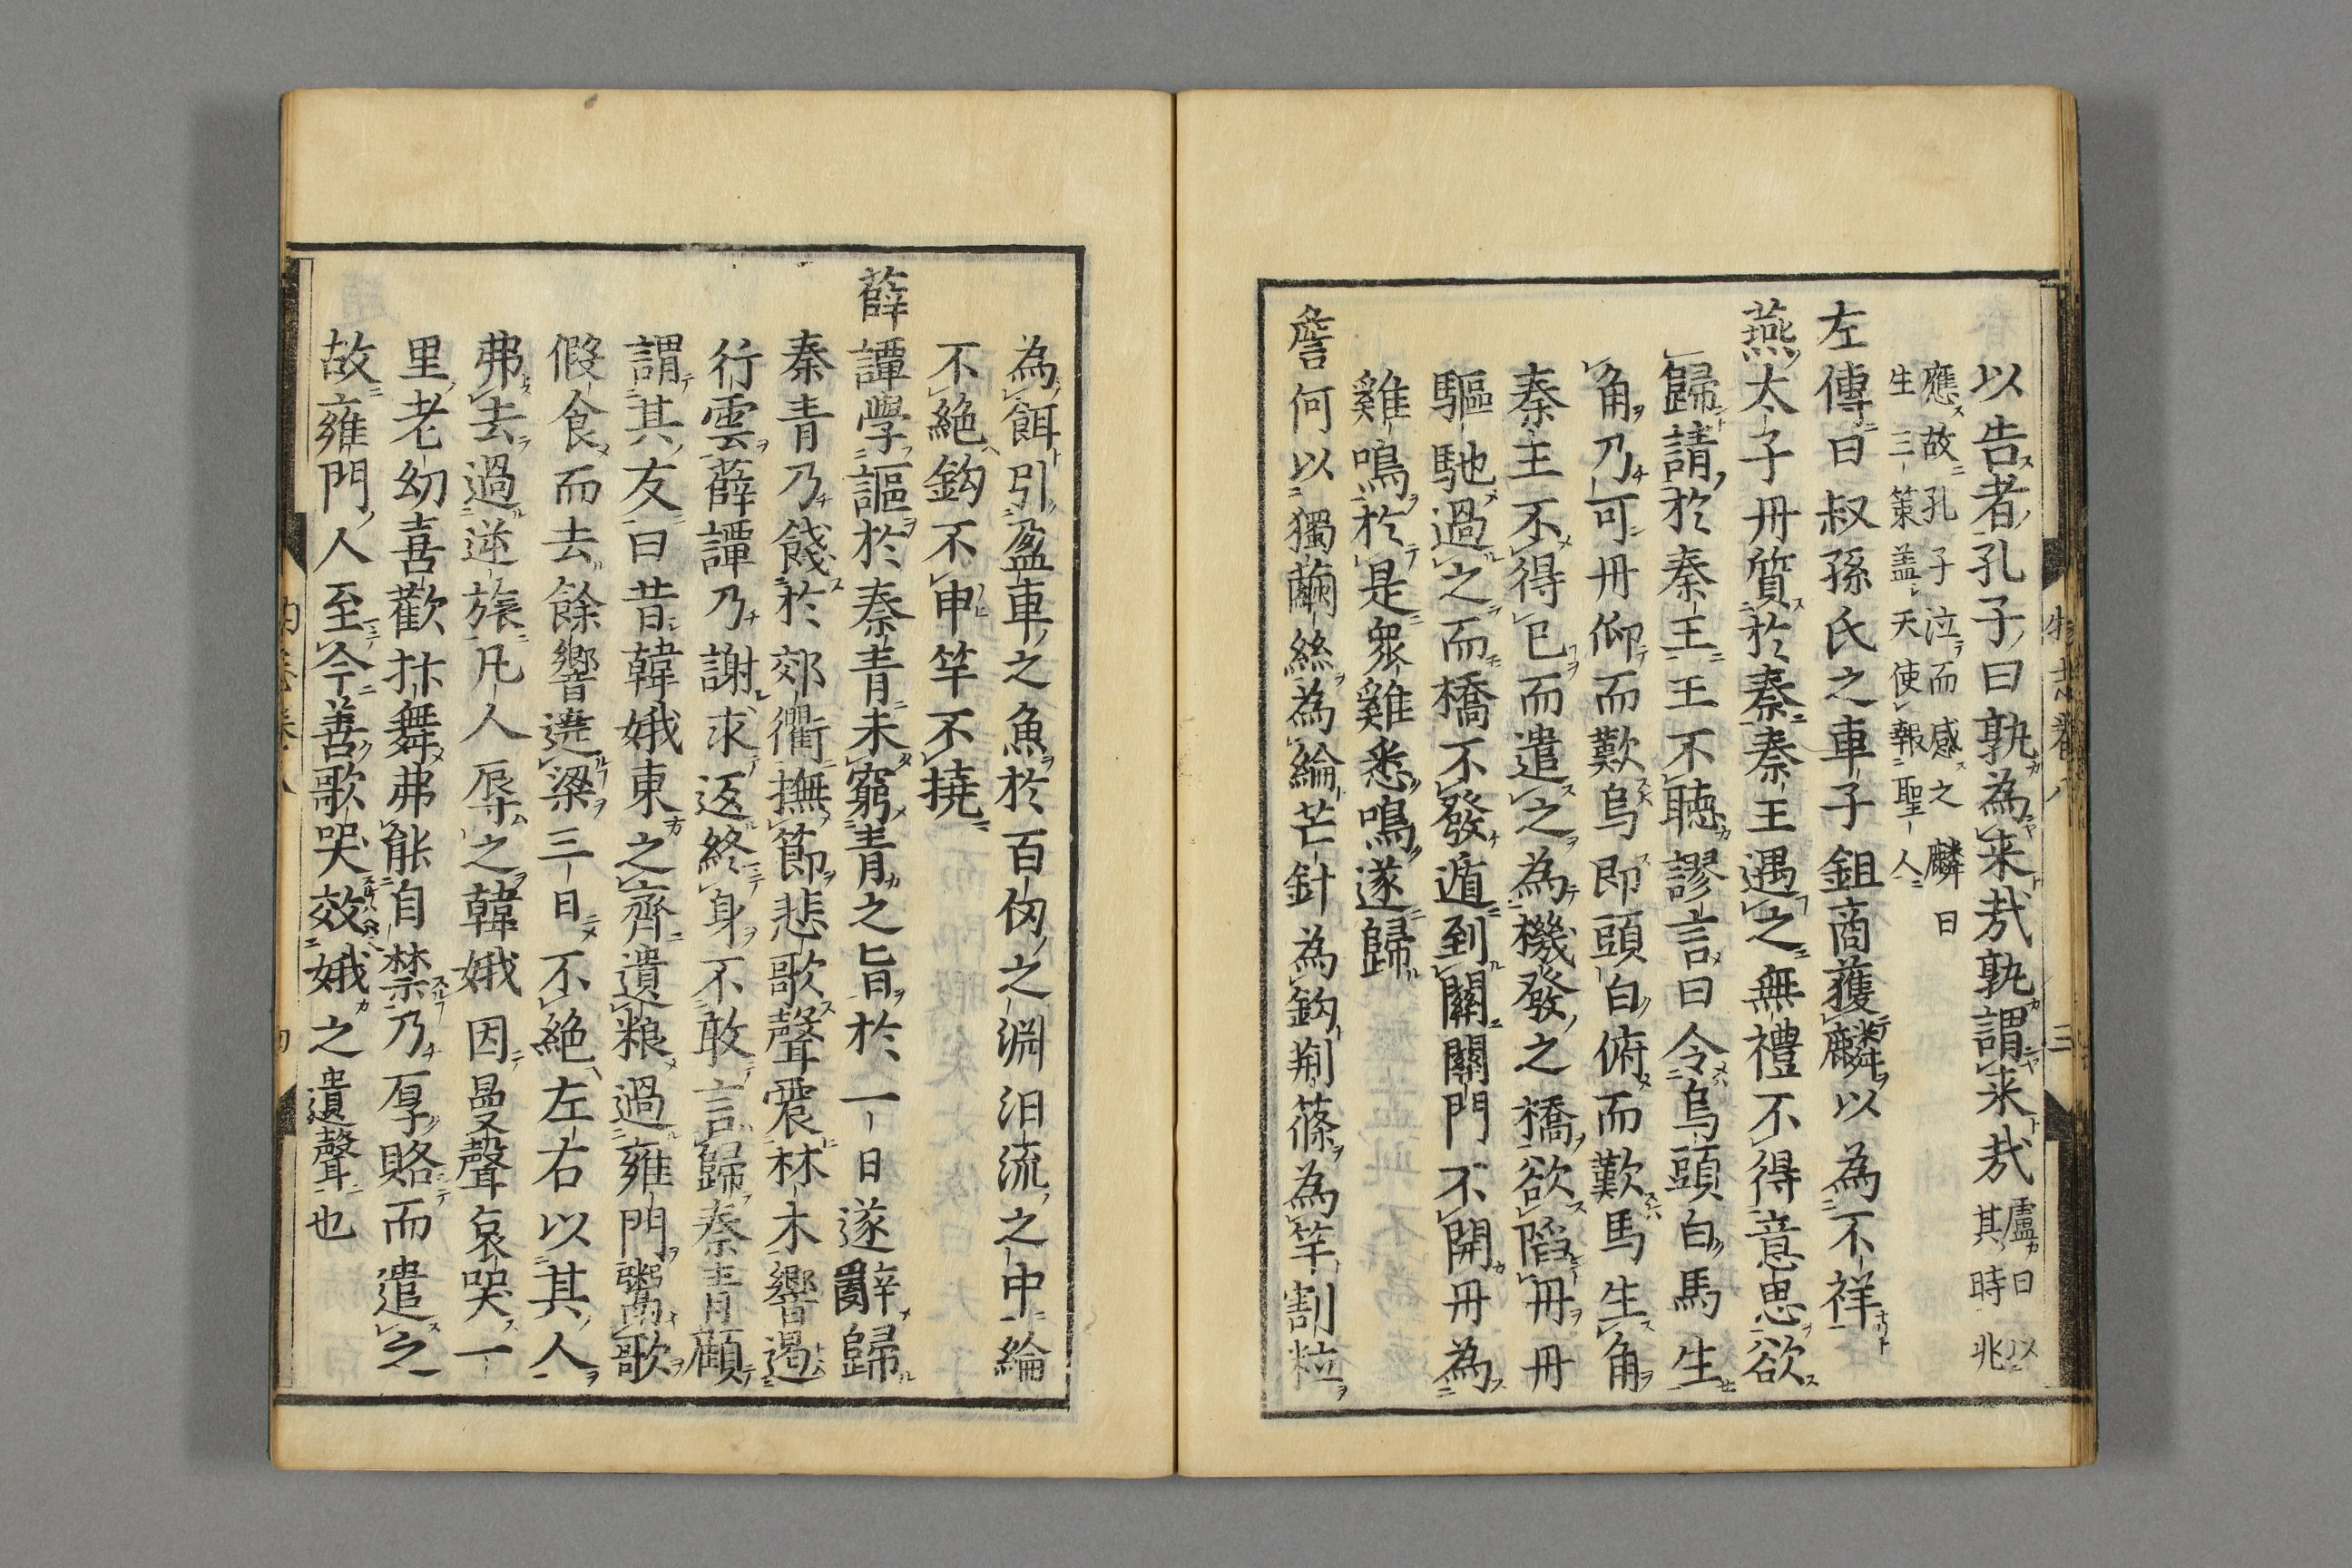 以告者孔子曰孰為来㢤孰謂来㢤盧曰以其時兆
應故孔子泣而感之麟曰
生三策盖天使報聖人
左傳曰叔孫氏之車子鉏商獲麟以為不祥
燕太子丹質於秦秦王遇之無禮不得意思欲
歸請於秦王王不聽謬言曰令烏頭白馬生
角乃可丹仰而歎烏即頭白俯而歎馬生角
秦王不得已而遣之為機發之橋欲陷丹丹
驅馳過之而橋不發遁到關關門不開丹為
雞鳴於是衆雞悉鳴遂歸
詹何以獨繭絲為綸芒針為鈎荊篠為竿割粒
為餌引盈車之魚於百仞之淵汨流之中綸
不絶鈎不申竿不撓
薛譚學謳於秦青未窮青之旨於一日遂辭歸
秦青乃餞於郊衢撫節悲歌聲震林木響遏
行雲薛譚乃謝求返終身不敢言歸秦青顧
謂其友曰昔韓娥東之齊遺粮過雍門鬻歌
假食而去餘響遶梁三日不絶左右以其人
弗去過逆旅凡人辱之韓娥因曼聲哀哭一
里老幼喜歡抃舞弗能自禁乃厚賂而遣之
故雍門人至今善歌哭效娥之遺聲也